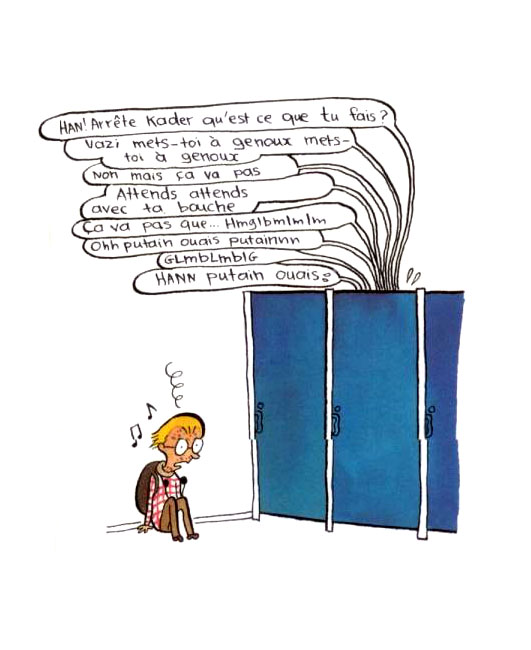 HAN! Arrête Kader qu'est ce que tu fais?
Vazi mets-toi à genoux mets-
toi à genoux
Non mais ça va pas
Attends attends
avec ta bouche
Ça va pas que... Hmglbmlmlm
Ohh putain ouais putainnn
GLmbLmblG
HANN putain ouais